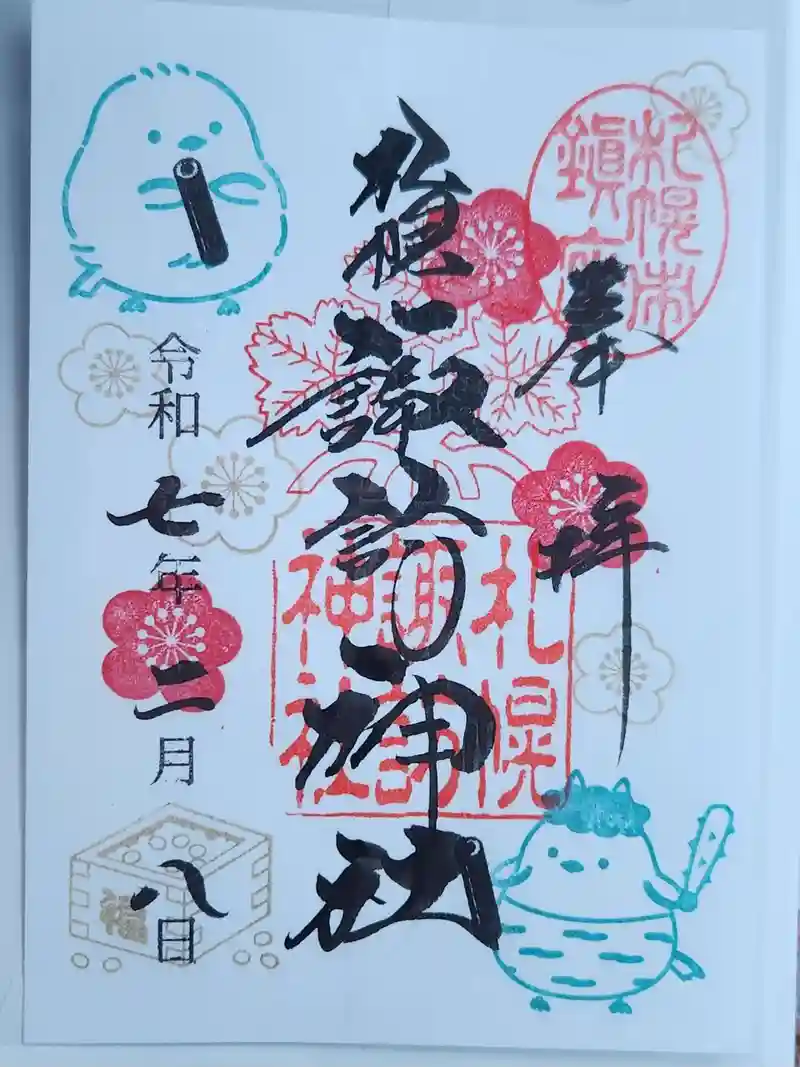 奉拝
札幌市
鎮座
札幌諏訪神社
札幌
諏訪
神社
令和七年二月八日
福